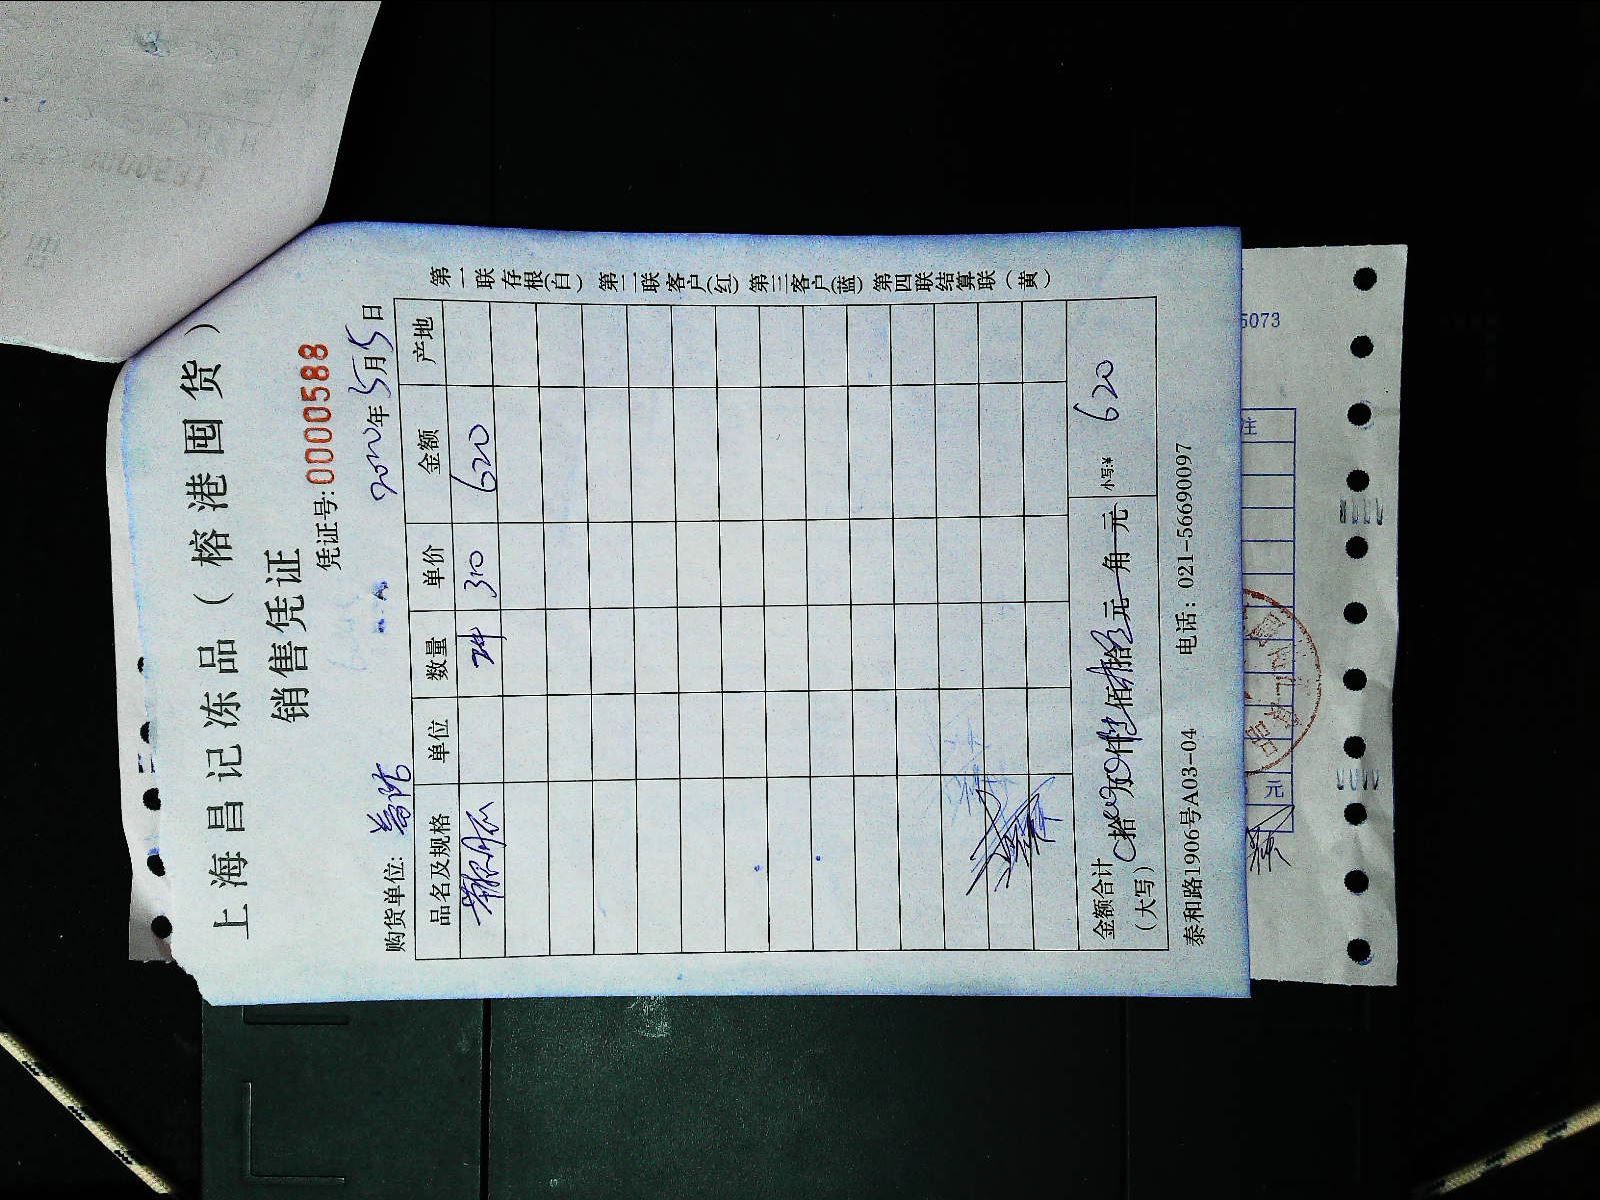 上海昌记冻品（榕港囤货）
销售凭证
凭证号:0000588
购货单位: 2020年5月5日
品名及规格 单位 数量 单价 金额 产地
2件 310 620
金额合计（大写） 拾 万 仟 佰 拾 元 角 元 小写:¥ 620
泰和路1906号A03-04 电话：021-56690097
第一联存根(白) 第二联客户(红) 第三客户(蓝) 第四联结算联（黄）
5073
注
元